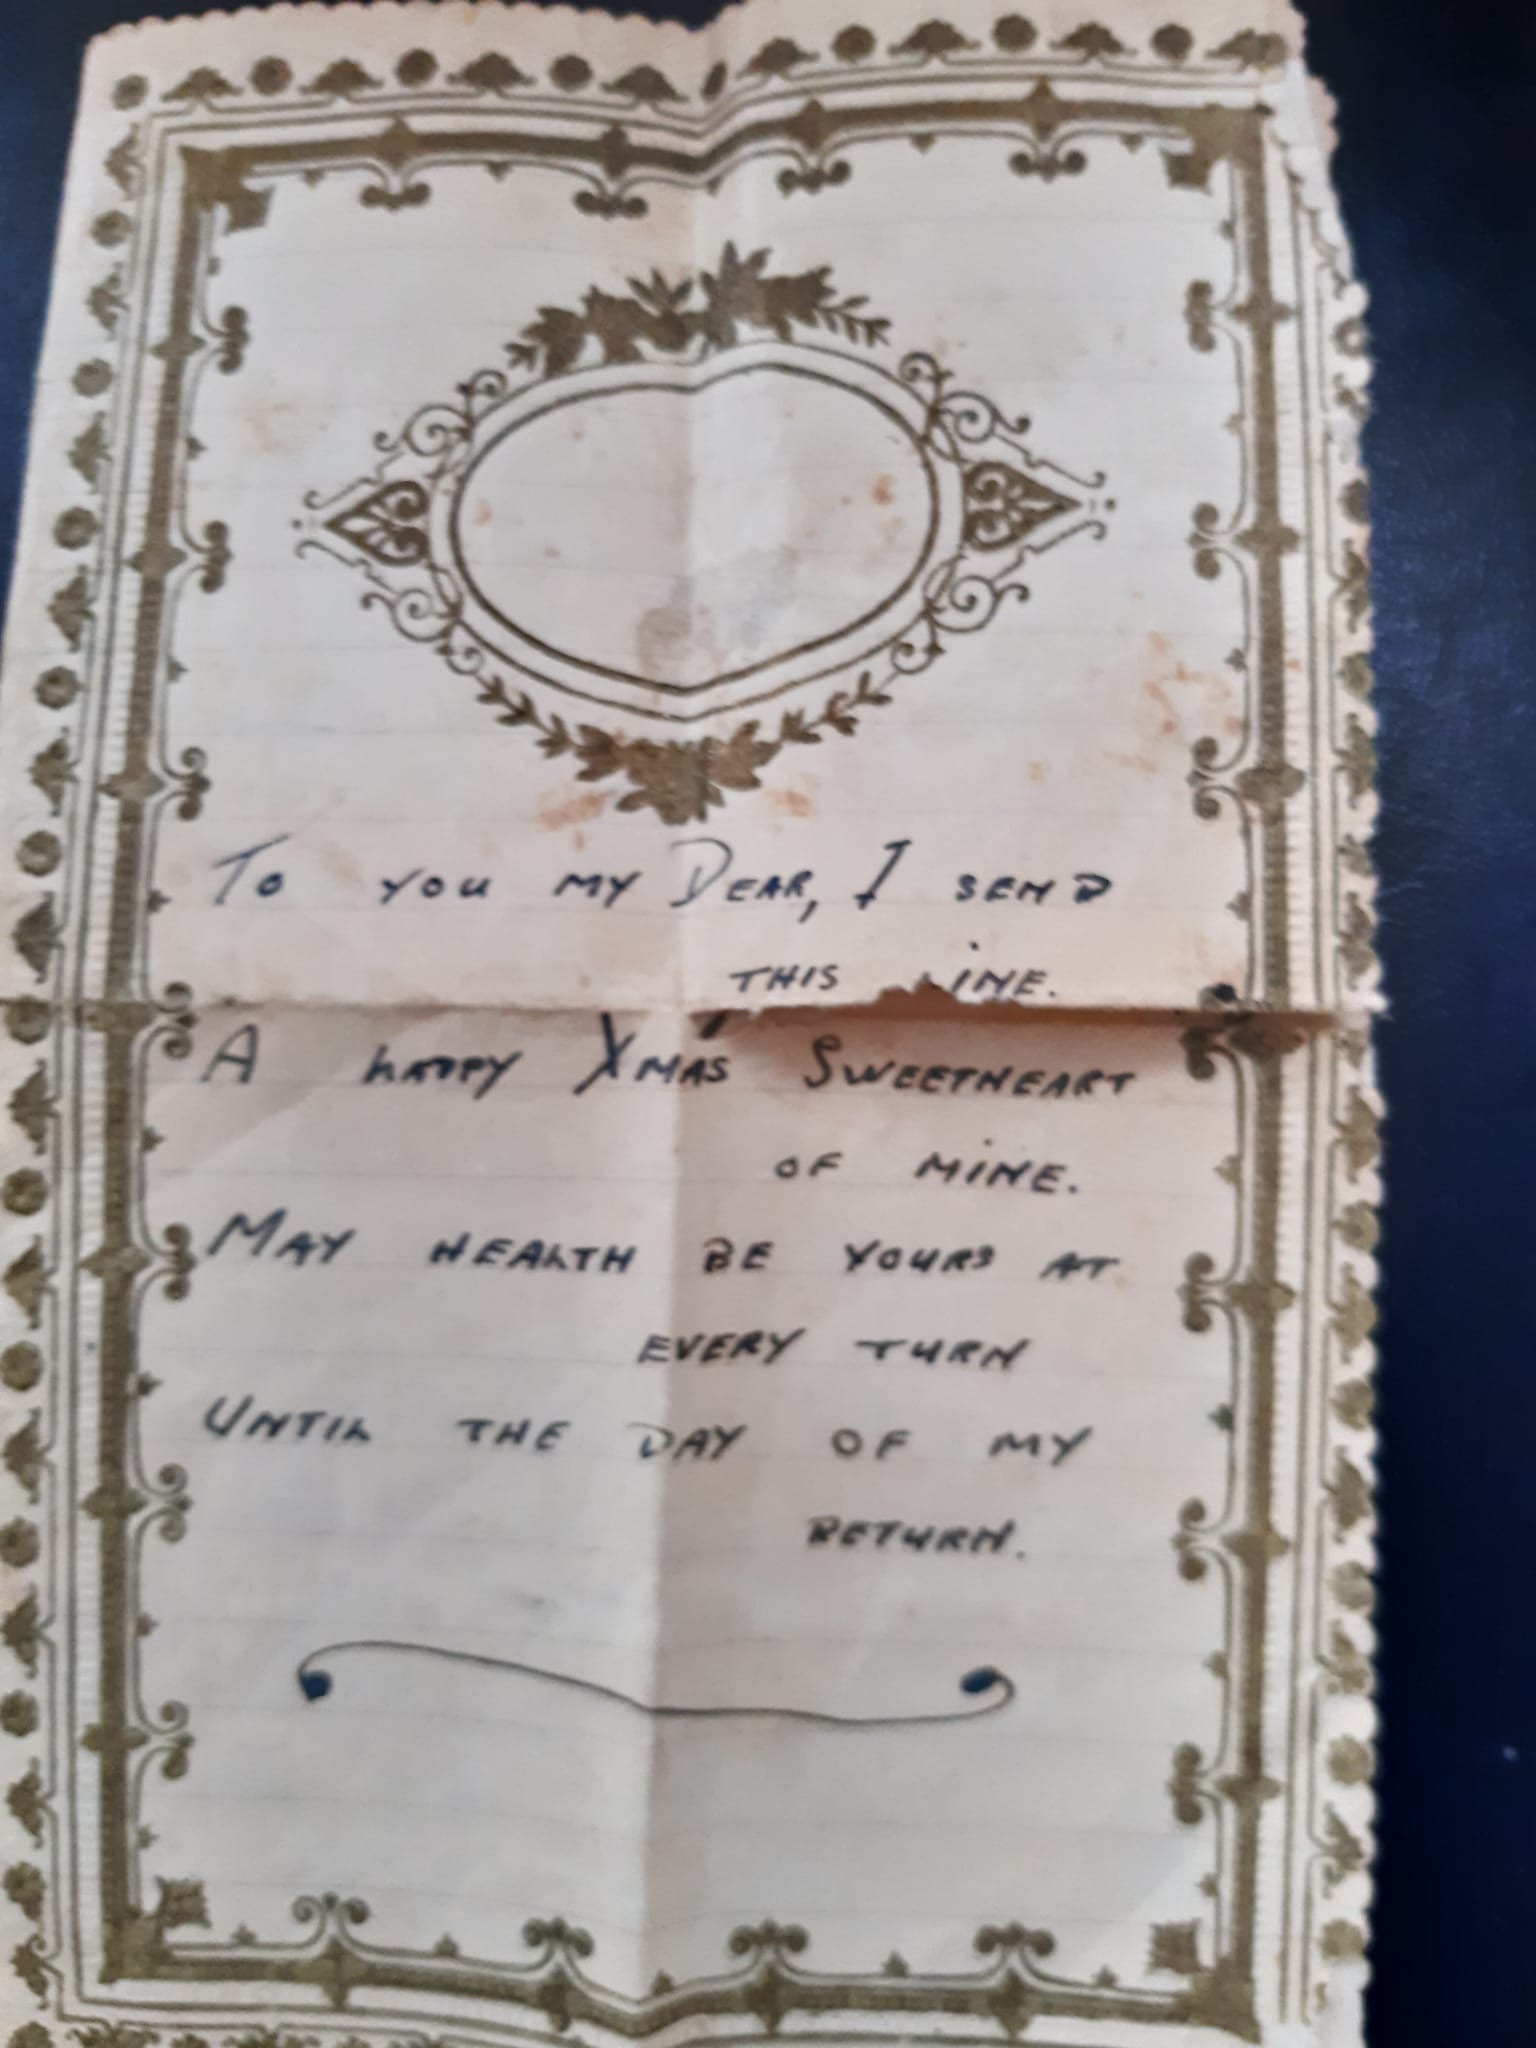 To you my Dear, I send
this Line.
A happy Xmas Sweetheart
of mine.
May health be yours at
every turn
Until the day of my
return.